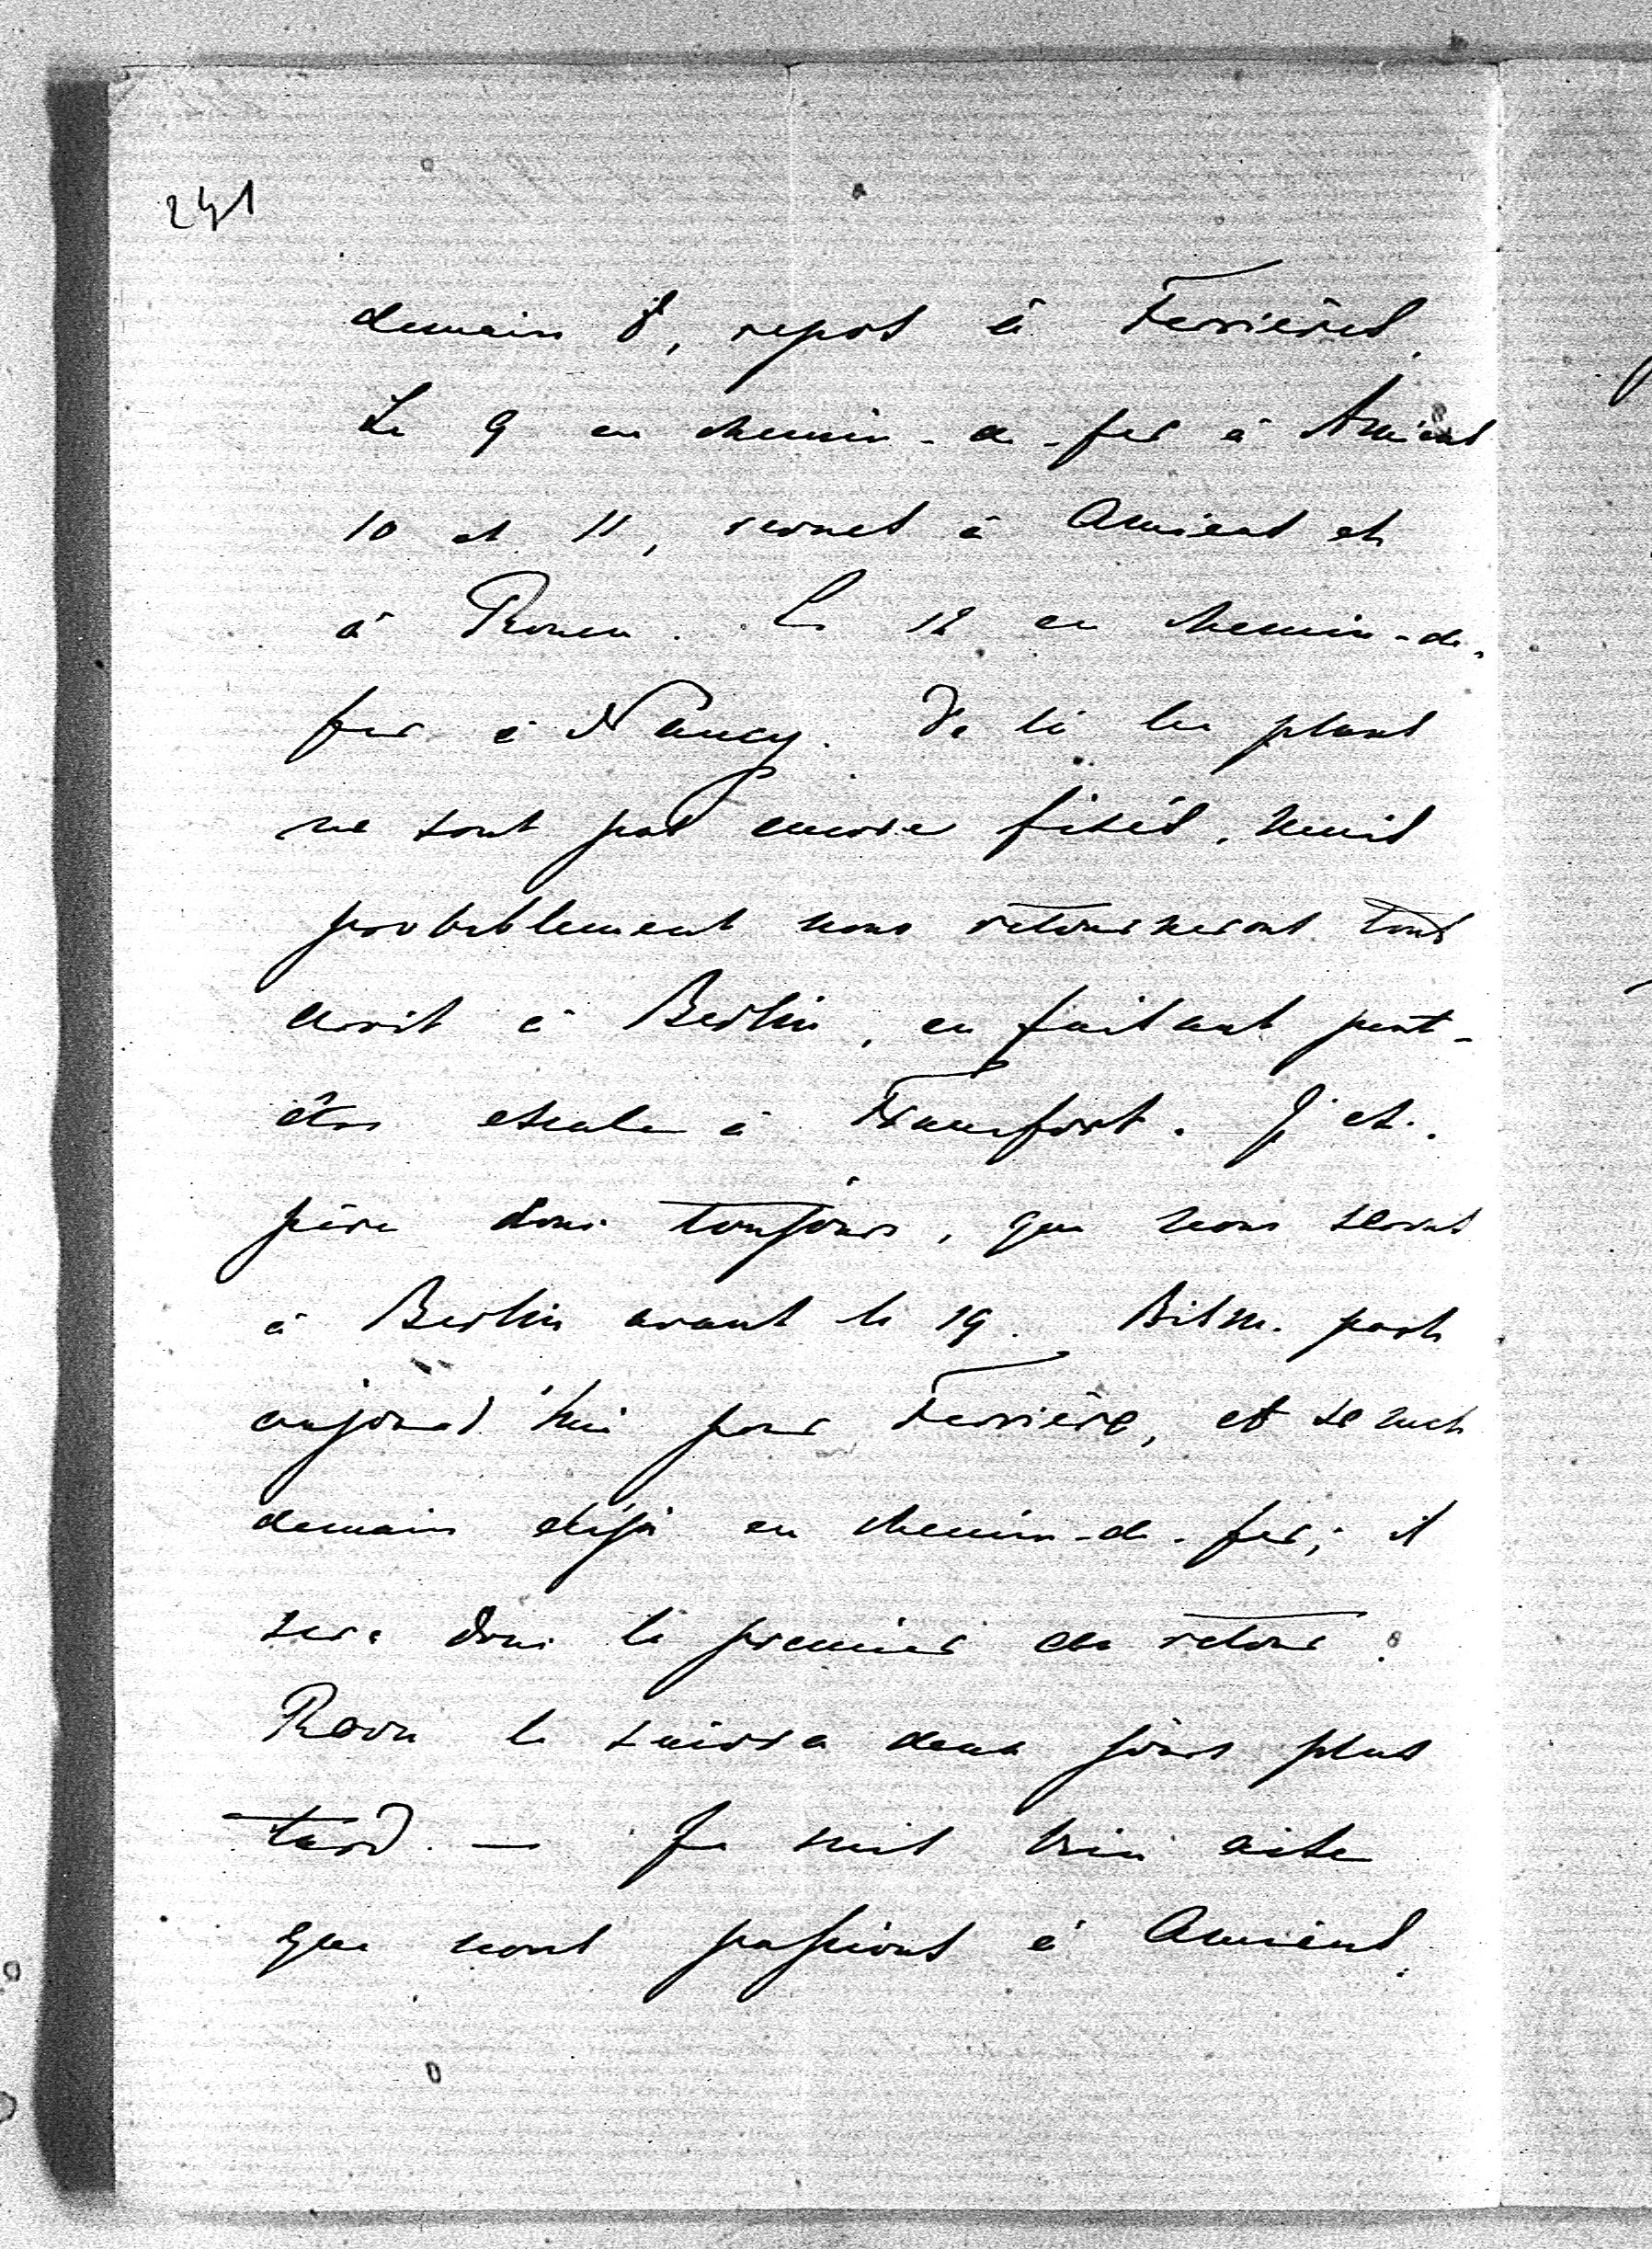 241
demain 8, repos à Ferrières.
Le 9 en chemin-de-fer à Amiens
10 et 11, revues à Amiens et
à Rouen. Le 12 en chemin-de-
fer à Nancy. De là les plans
ne sont pas encore fixés, mais
probablement nous retournerons tout
droit à Berlin, en faisant peut-
être escale à Francfort. J'es-
père donc toujours, que nous serons
à Berlin avant le 19. Bism. part
aujourd'hui pour Ferrière, et se met
demain déjà en chemin-de-fer; il
sera donc le premier de retour.
Roon le suivra deux jours plus
tard. — Je suis bien aise
que nous passions à Amiens.